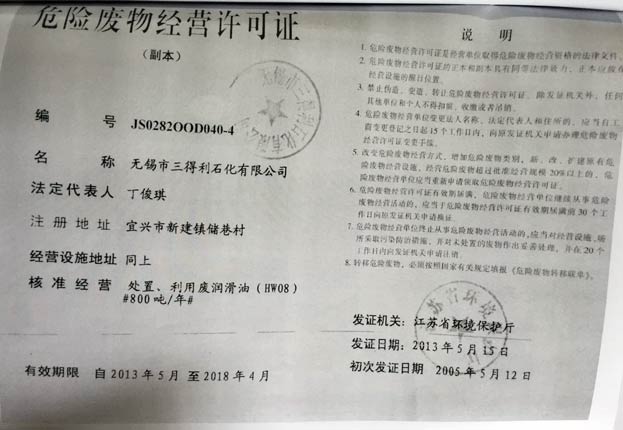 危险废物经营许可证
(副本)
编号 JS0282OOD040-4
名称 无锡市三得利石化有限公司
法定代表人 丁俊琪
注册地址 宜兴市新建镇储巷村
经营设施地址 同上
核准经营 处置、利用废润滑油(HW08)
#800吨/年#
有效期限 自2013年5月 至2018年4月
说明
1. 危险废物经营许可证是经营单位取得危险废物经营资格的法律文件。
2. 危险废物经营许可证的正本和副本具有同等法律效力,正本应放在
经营设施的醒目位置。
3. 禁止伪造、变造、转让危险废物经营许可证。除发证机关外,任何
其他单位和个人不得扣留、收缴或者吊销。
4. 危险废物经营单位变更法人名称、法定代表人和住所的,应当自工
商变更登记之日起15个工作日内,向原发证机关申请办理危险废物
经营许可证变更手续。
5. 改变危险废物经营方式,增加危险废物类别,新、改、扩建原有危
险废物经营设施,经营危险废物超过批准经营规模20%以上的,危
险废物经营单位应当重新申请领取危险废物经营许可证。
6. 危险废物经营许可证有效期届满,危险废物经营单位继续从事危险
废物经营活动的,应当于危险废物经营许可证有效期届满前30个工
作日向原发证机关申请换证。
7. 危险废物经营单位终止从事危险废物经营活动的,应当对经营设施、场
所采取污染防治措施,并对未处置的废物作出妥善处理,并在20个
工作日内向发证机关申请注销。
8. 转移危险废物,必须按照国家有关规定填报《危险废物转移联单》。
发证机关: 江苏省环境保护厅
发证日期: 2013年5月15日
初次发证日期 2005年5月12日
无锡市三得利石化有限公司